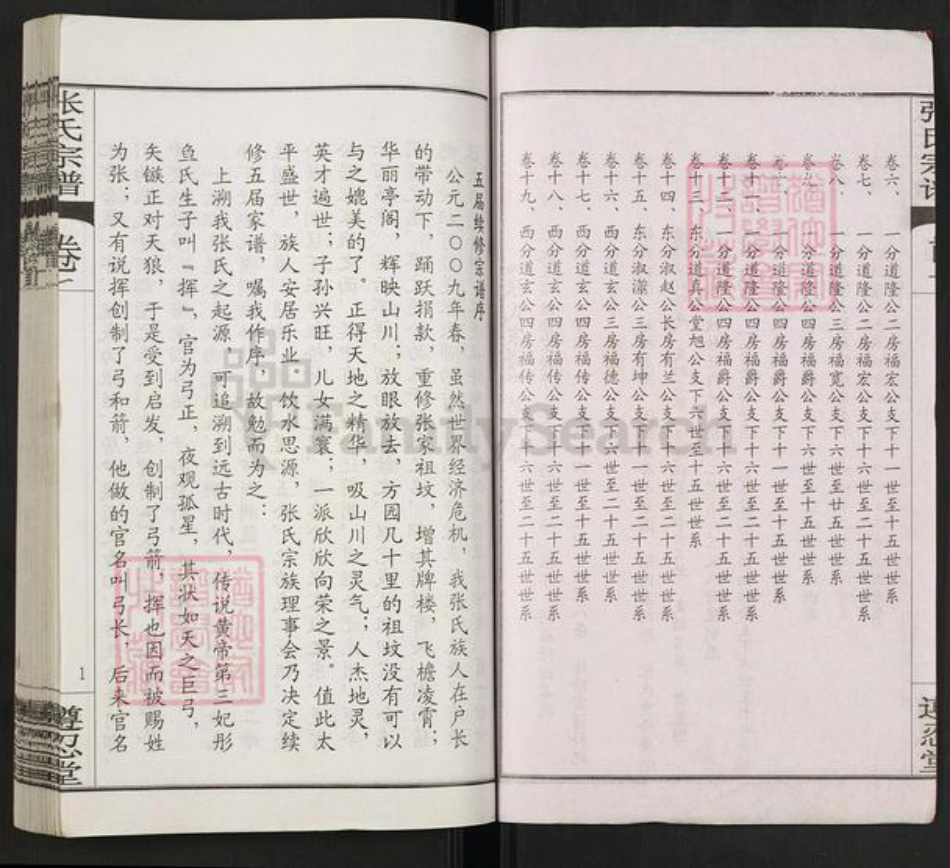 张氏宗谱
卷六、一分道隆公二房福宏公支下十一世至十五世世系
卷七、一分道隆公二房福宏公支下十六世至二十五世世系
卷八、一分道隆公三房福宽公支下六世至廿五世世系
一分道隆公四房福爵公支下六世至十五世世系
一分道隆公四房福爵公支下十一世至十五世世系
一分道隆公四房福爵公支下十六世至二十五世世系
卷十二、一分道隆公四房福爵公支下十六世至二十五世世系
卷十三、东分道真公堂旭公支下六世至十五世世系
卷十四、东分淑赵公长房有兰公支下十六世至二十五世世系
卷十五、东分淑濴公三房有坤公支下十六世至二十五世世系
卷十六、西分道玄公三房福德公支下六世至二十五世世系
卷十七、西分道玄公四房福传公支下十一世至十五世世系
卷十八、西分道玄公四房福传公支下十六世至二十五世世系
卷十九、西分道玄公四房福传公支下十六世至二十五世世系
遵忍堂
五届续修宗谱序
公元二〇〇九年春，虽然世界经济危机，我张氏族人在户长
的带动下，踊跃捐款，重修张家祖坟，增其牌楼，飞檐凌霄；
华丽亭阁，辉映山川；放眼放去，方园几十里的祖坟没有可以
与之媲美的了。正得天地之精华，吸山川之灵气；人杰地灵，
英才遍世；子孙兴旺，儿女满寰；一派欣欣向荣之景。值此太
平盛世，族人安居乐业，饮水思源，张氏宗族理事会乃决定续
修五届家谱，嘱我作序，故勉而为之：
上溯我张氏之起源，可追溯到远古时代，传说黄帝第三妃彤
鱼氏生子叫『挥』，官为弓正，夜观孤星，其状如天之巨弓，
矢镞正对天狼，于是受到启发，创制了弓箭，挥也因而被赐姓
为张；又有说挥创制了弓和箭，他做的官名叫弓长，后来官名
张氏宗谱
卷一
1
遵忍堂
FamilySearch